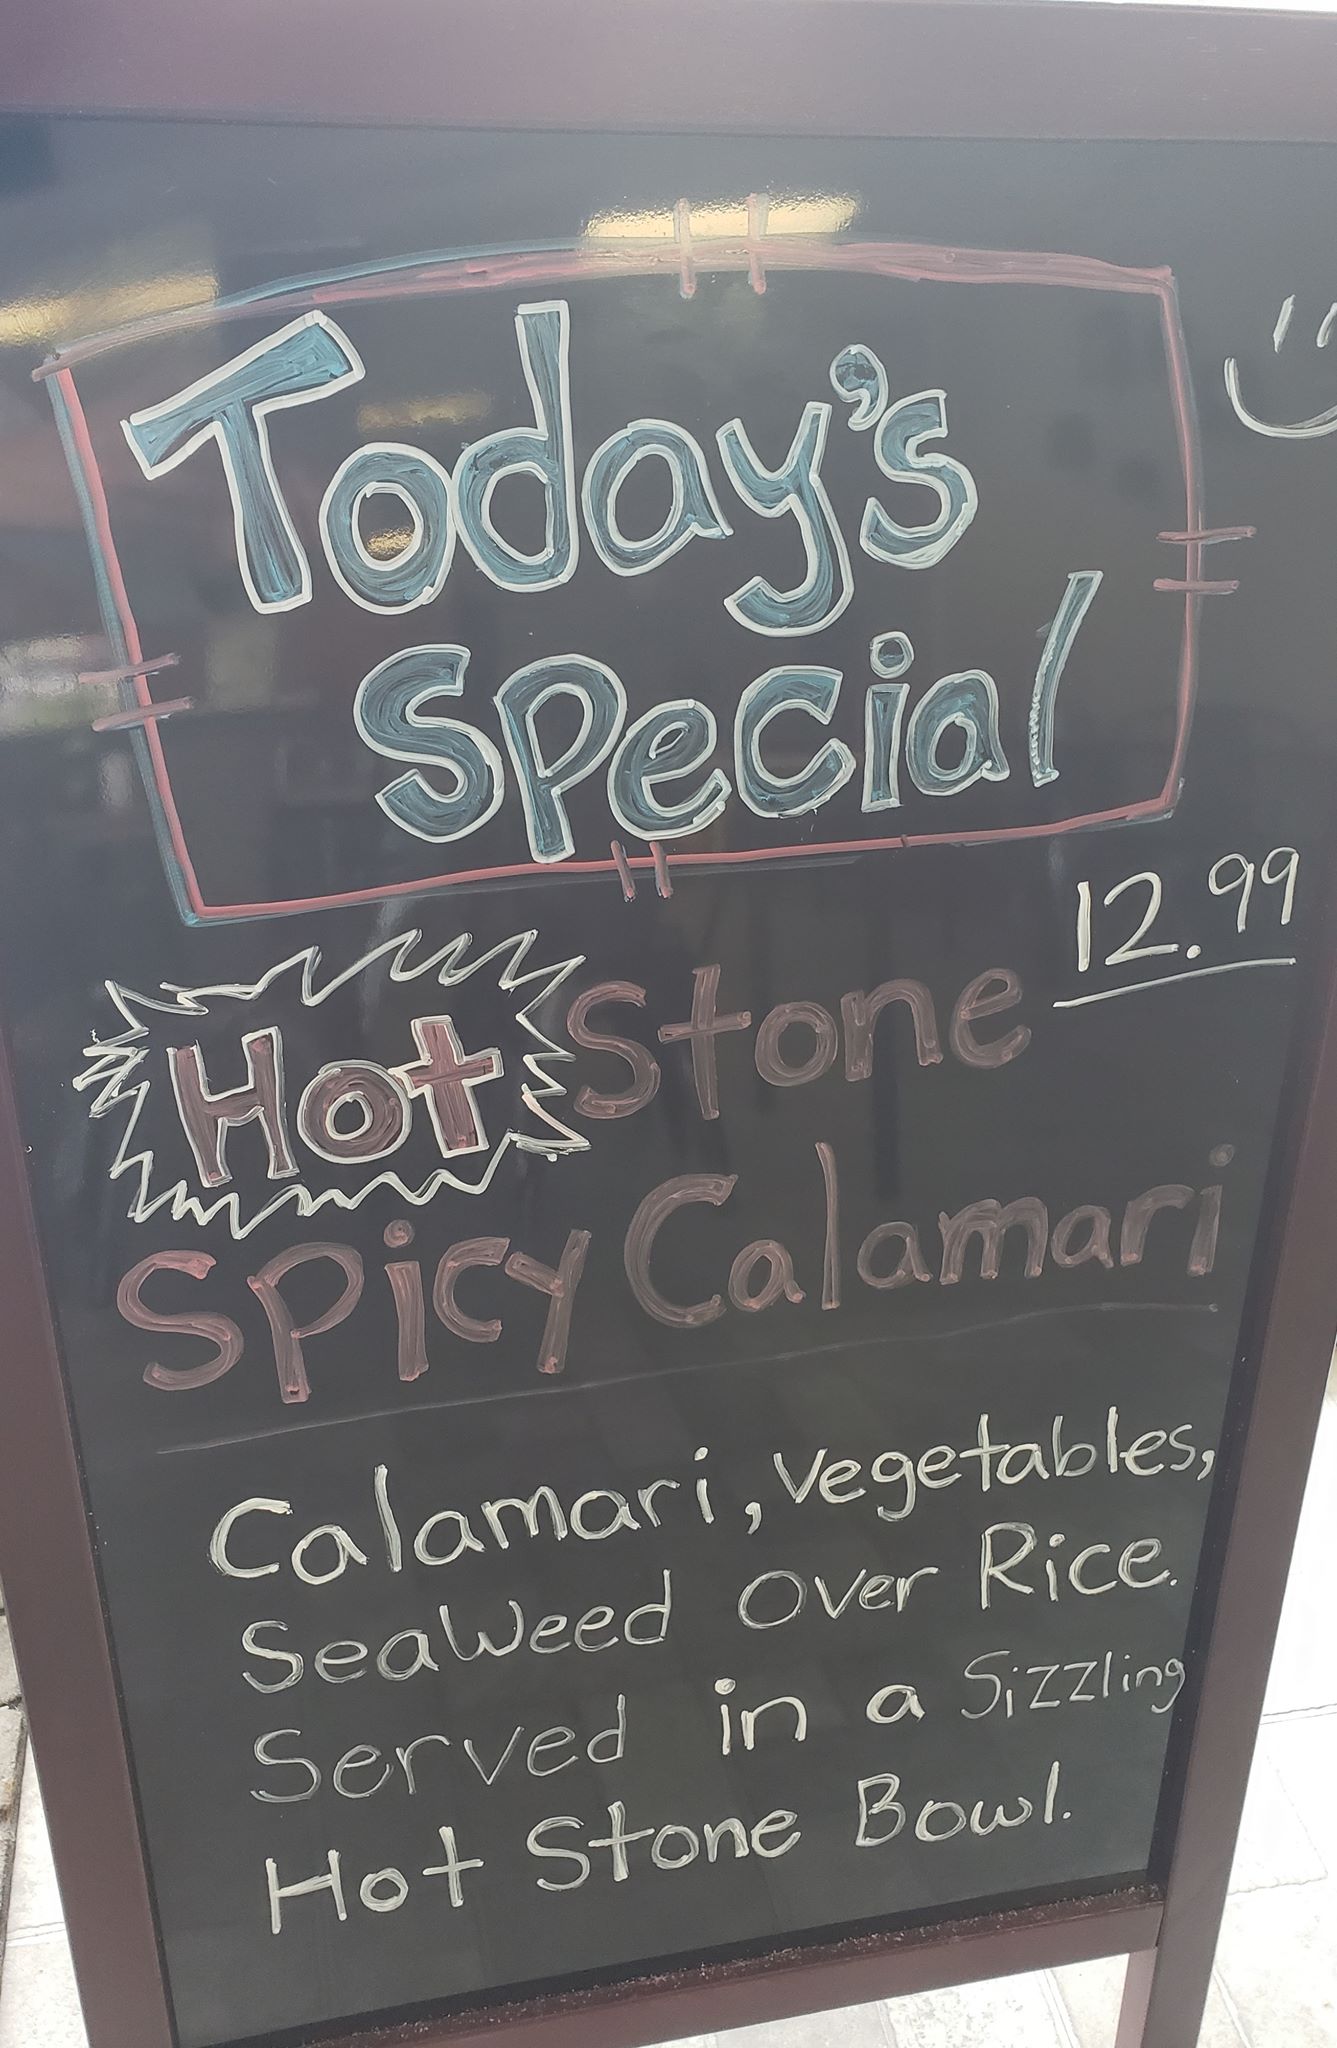 Today's
Special
12.99
Hot Stone
Spicy Calamari
Calamari, Vegetables,
Seaweed Over Rice.
Served in a Sizzling
Hot Stone Bowl.